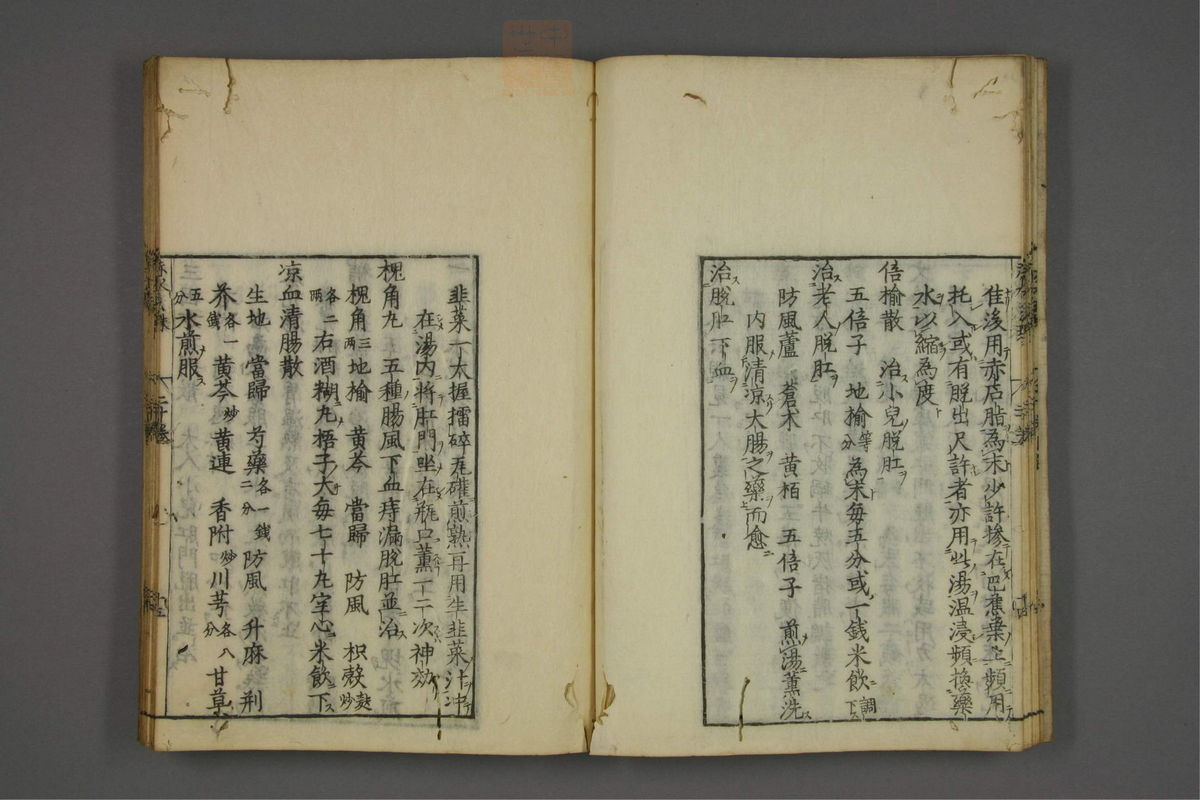 佳後用赤石脂為末少許摻在芭蕉葉上頻用
托入或有脱出尺許者亦用此湯温浸頻換藥
水以縮為度
倍榆散　治小兒脱肛
五倍子　地榆等分為末每五分或一銭米飲調下
治老人脱肛
防風蘆　蒼术　黄栢　五倍子　煎湯薰洗
内服清凉大腸之藥而愈
治脱肛下血
韭菜一大握擂碎瓦礶煎熟再用生韭菜汁冲
在湯内将肛門坐在瓶口薫一二次神効
槐角丸　五種腸風下血痔漏脱肛並治
槐角三兩地榆　黄芩　當歸　防風　枳殼麩炒
各二兩右酒糊丸梧子大每七十丸空心米飲下
凉血清腸散
生地　當歸　芍藥各一銭二分防風　升麻　荆
芥各一銭黄芩炒黄連　香附炒川芎各八分甘草
五分水煎服